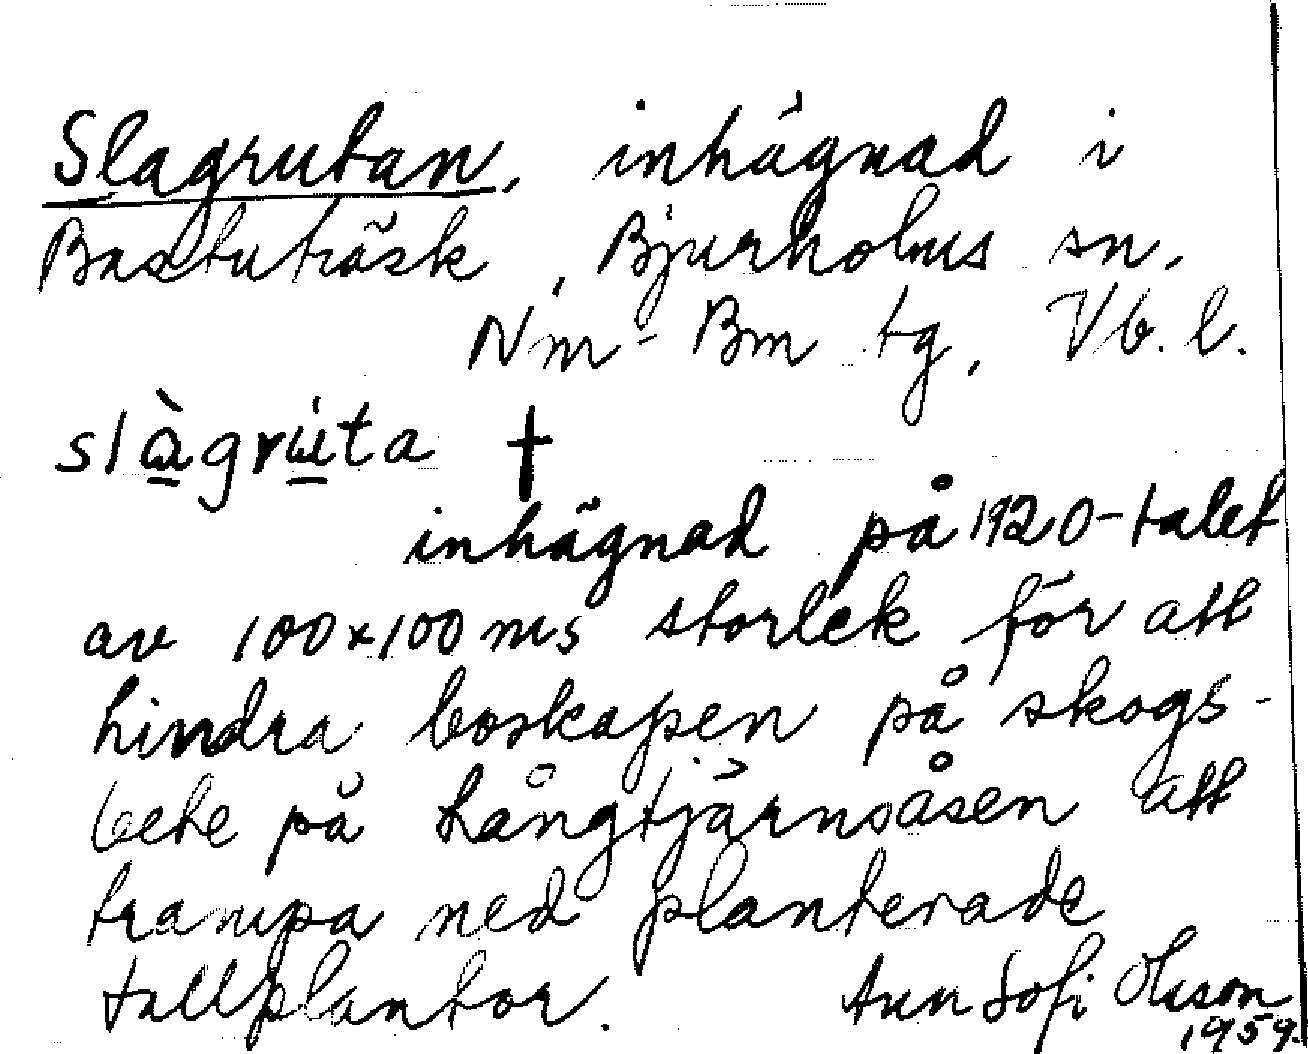 Slagrutan, inhägnad i
Bastuträsk, Bjurholms sn,
Nm-Bm tg, Vb. l.
slàgruta †
inhägnad på 1920-talet
av 100x100 ms storlek för att
hindra boskapen på skogs-
bete på Långtjärnsåsen att
trampa ned planterade
tallplantor. Ann Sofi Olsson
1959.